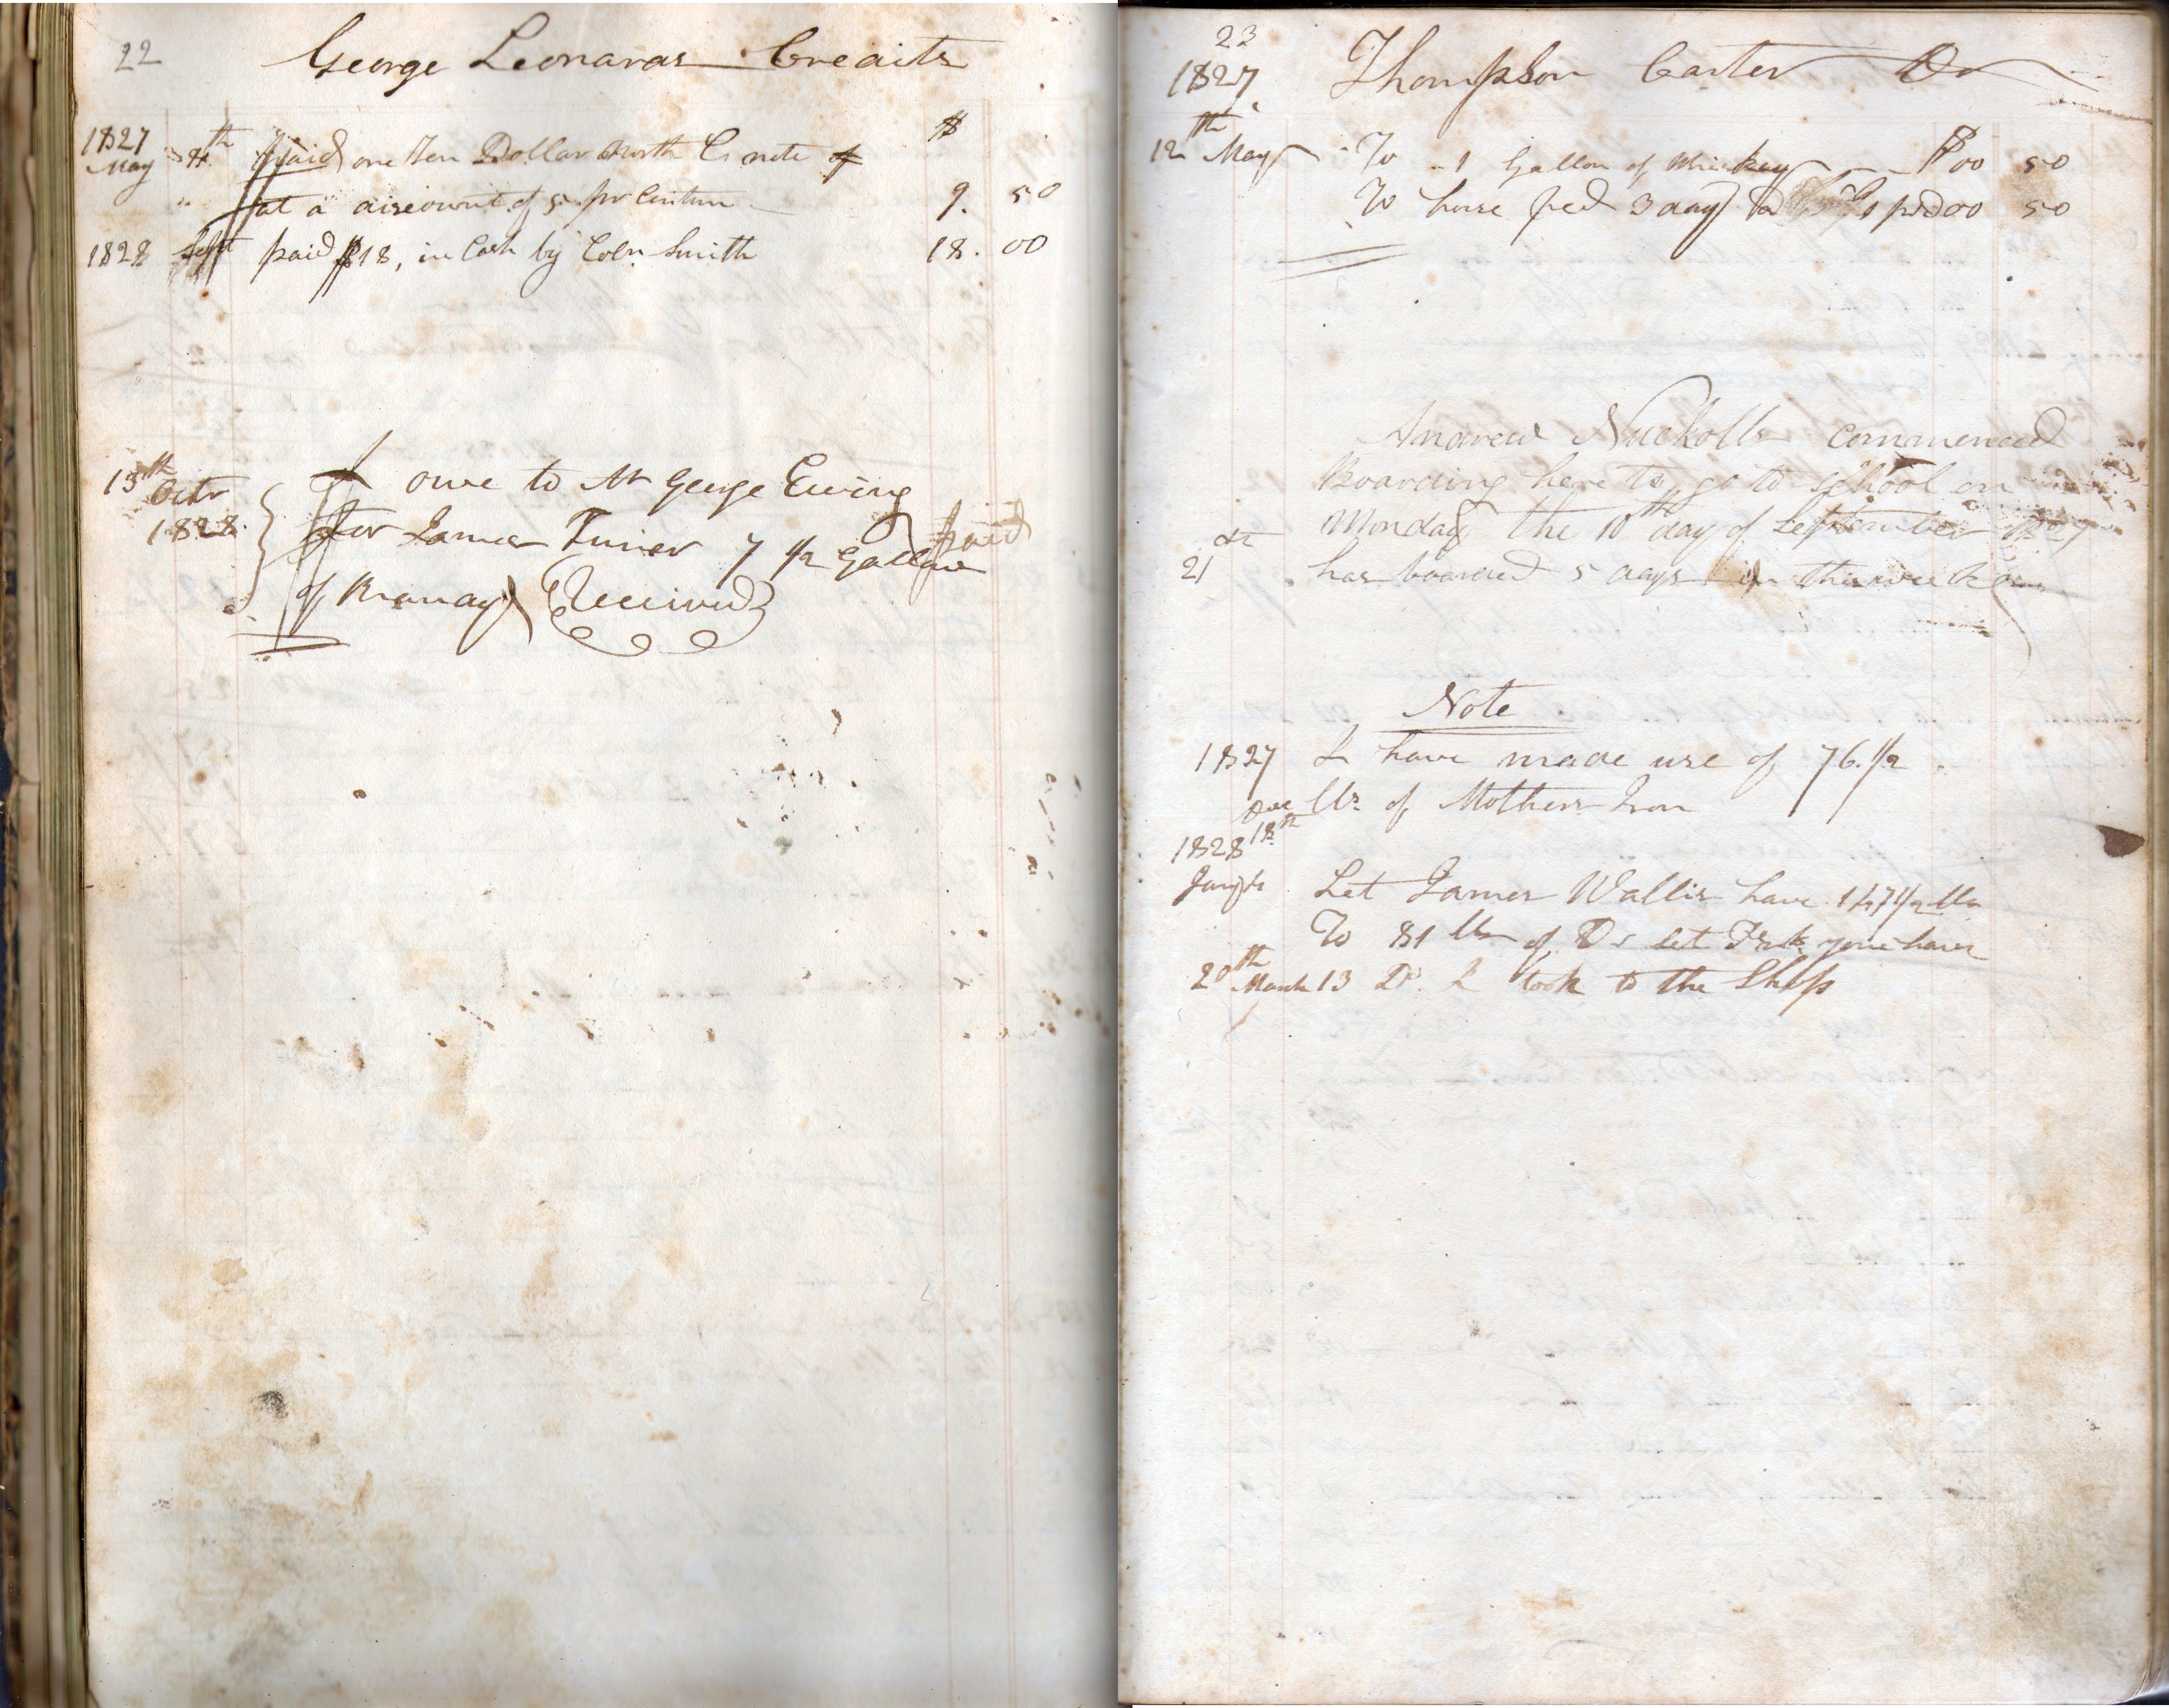 22
George Leonards Credits
$
1827
May 8th paid one Ten Dollar North C. note
" at a discount of 5 pr Centum 9. 50
1828 Sept paid $18, in Cash by Coln Smith 18. 00
13th Octr 1828. I owe to Mr George Ewing
for James Turner 7 1/2 Gallons paid
of Branday Received
23
1827 Thompson Carter Dr
12th May To 1 Gallon of Whiskey $00 50
To horse fed 3 days 00 50
Andrew Nuckolls commenced
Boarding here to go to School on
Monday the 10th day of September 1827
21st has boarded 5 days in this week
Note
1827 I have made use of 76.1/2
Dec 18th lbs of Mothers Iron
1828
Let James Wallis have lbs
To 81 lbs of Do let have
20th March 13 Do. I took to the Shop